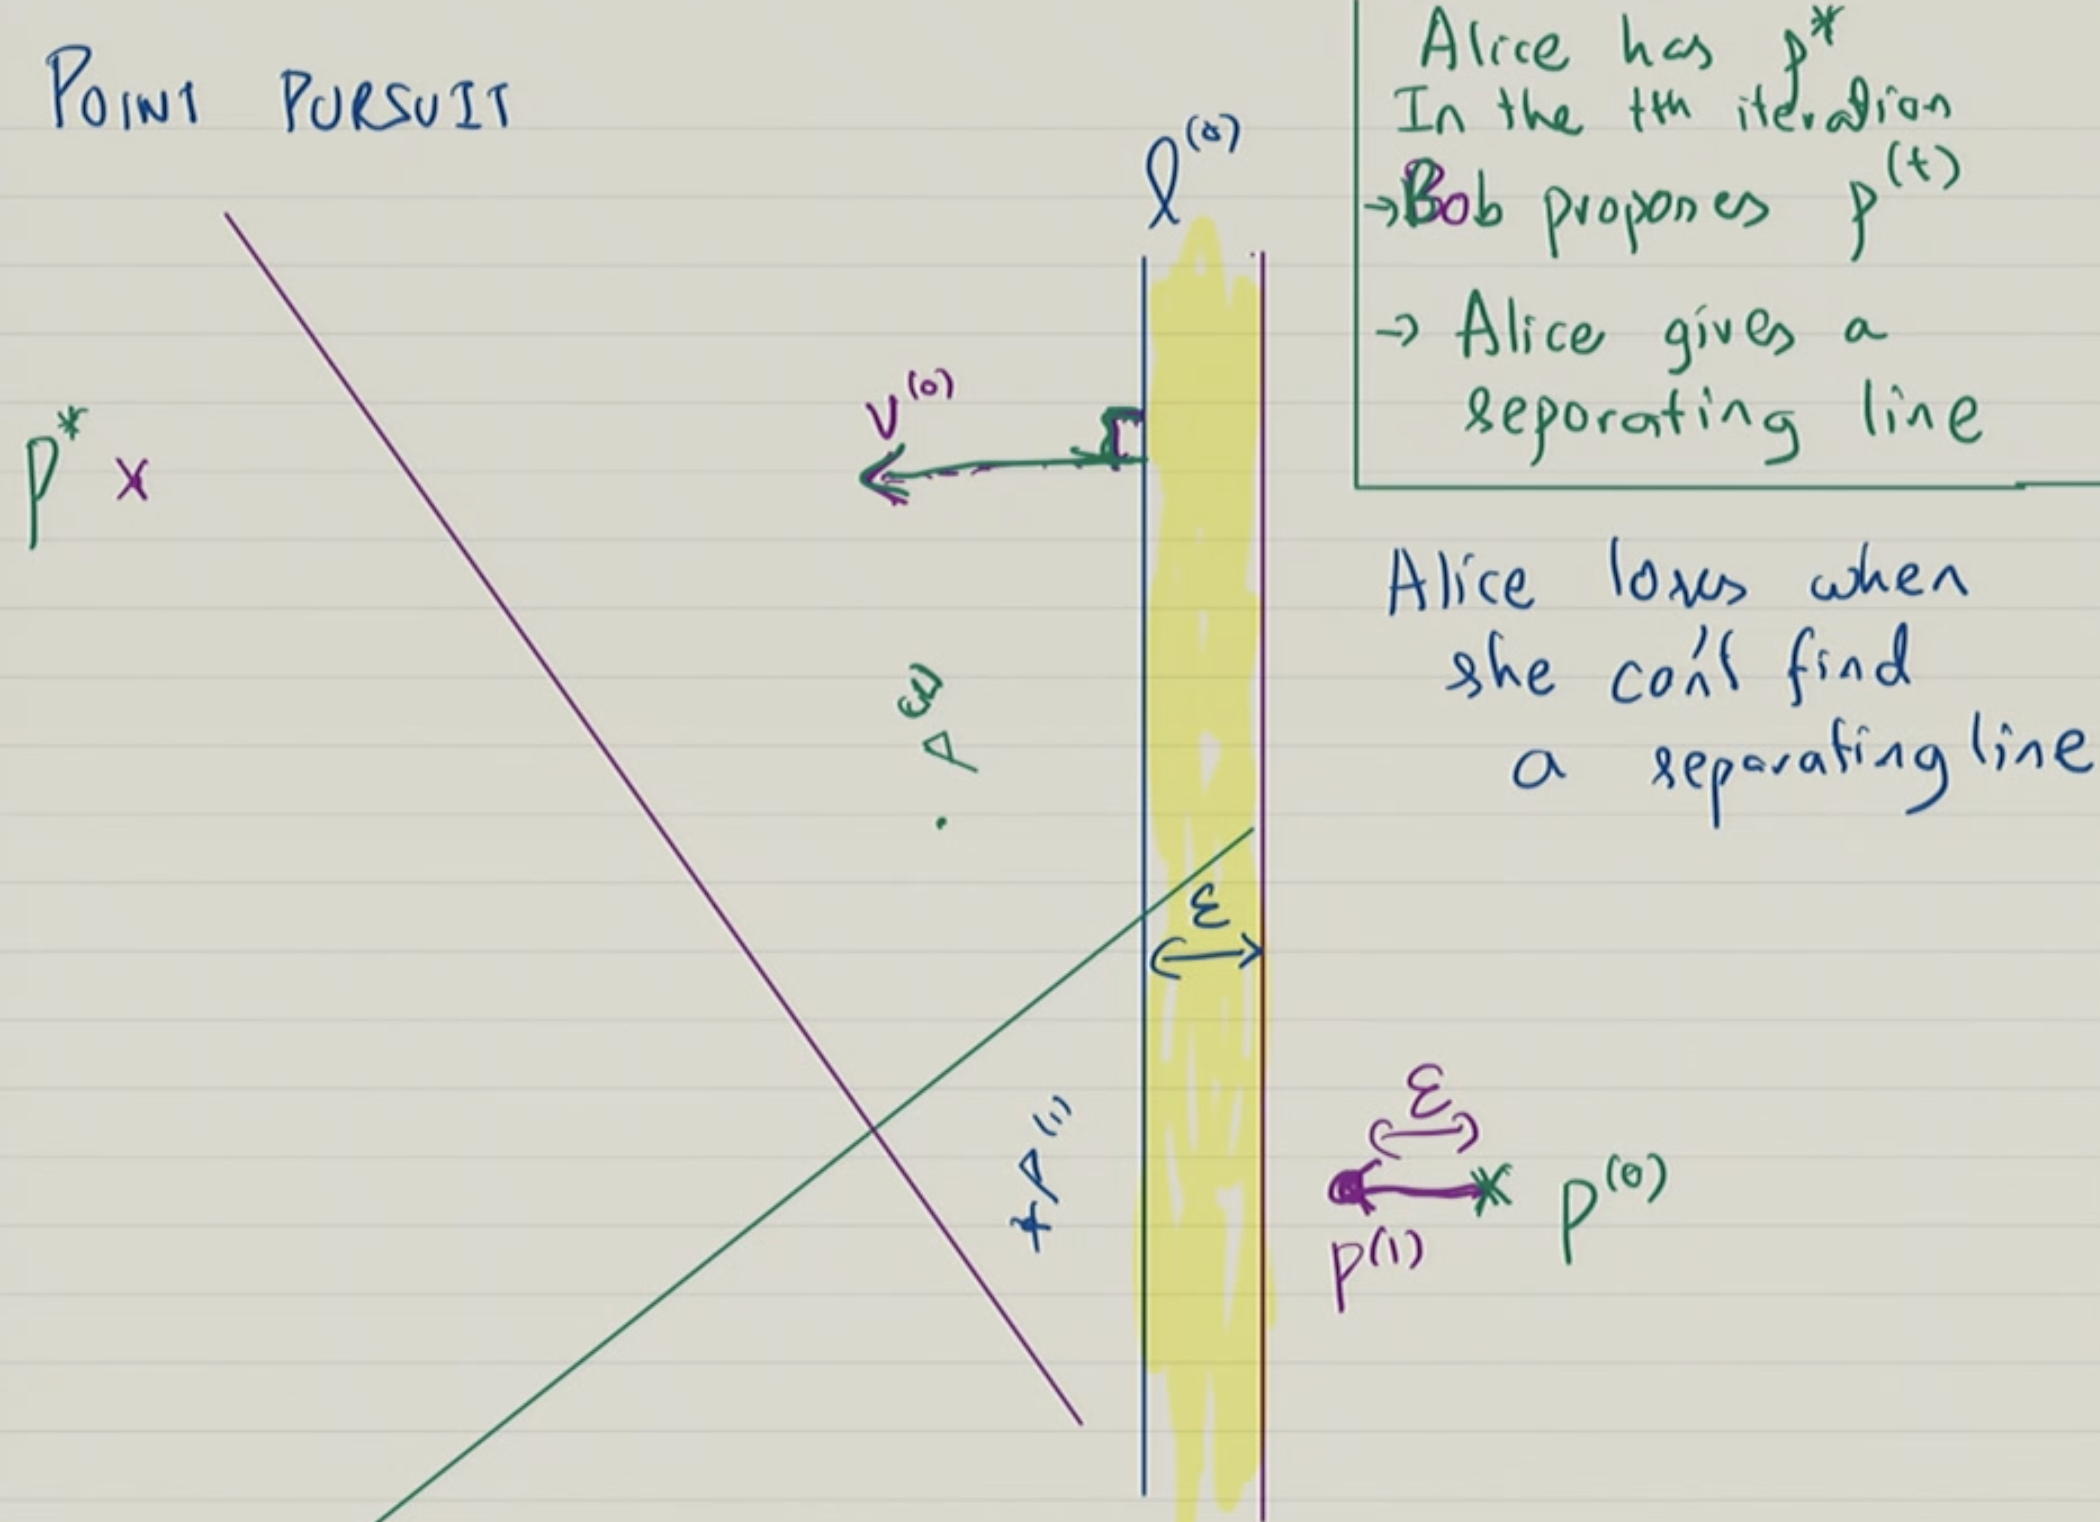 POINT PURSUIT
Alice has p*
In the tth iteration
→ Bob proposes p^(t)
→ Alice gives a
separating line
l^(0)
v^(0)
p* x
Alice loses when
she can't find
a separating line
ε
p^(1)
ε
p^(0)
p^(1)